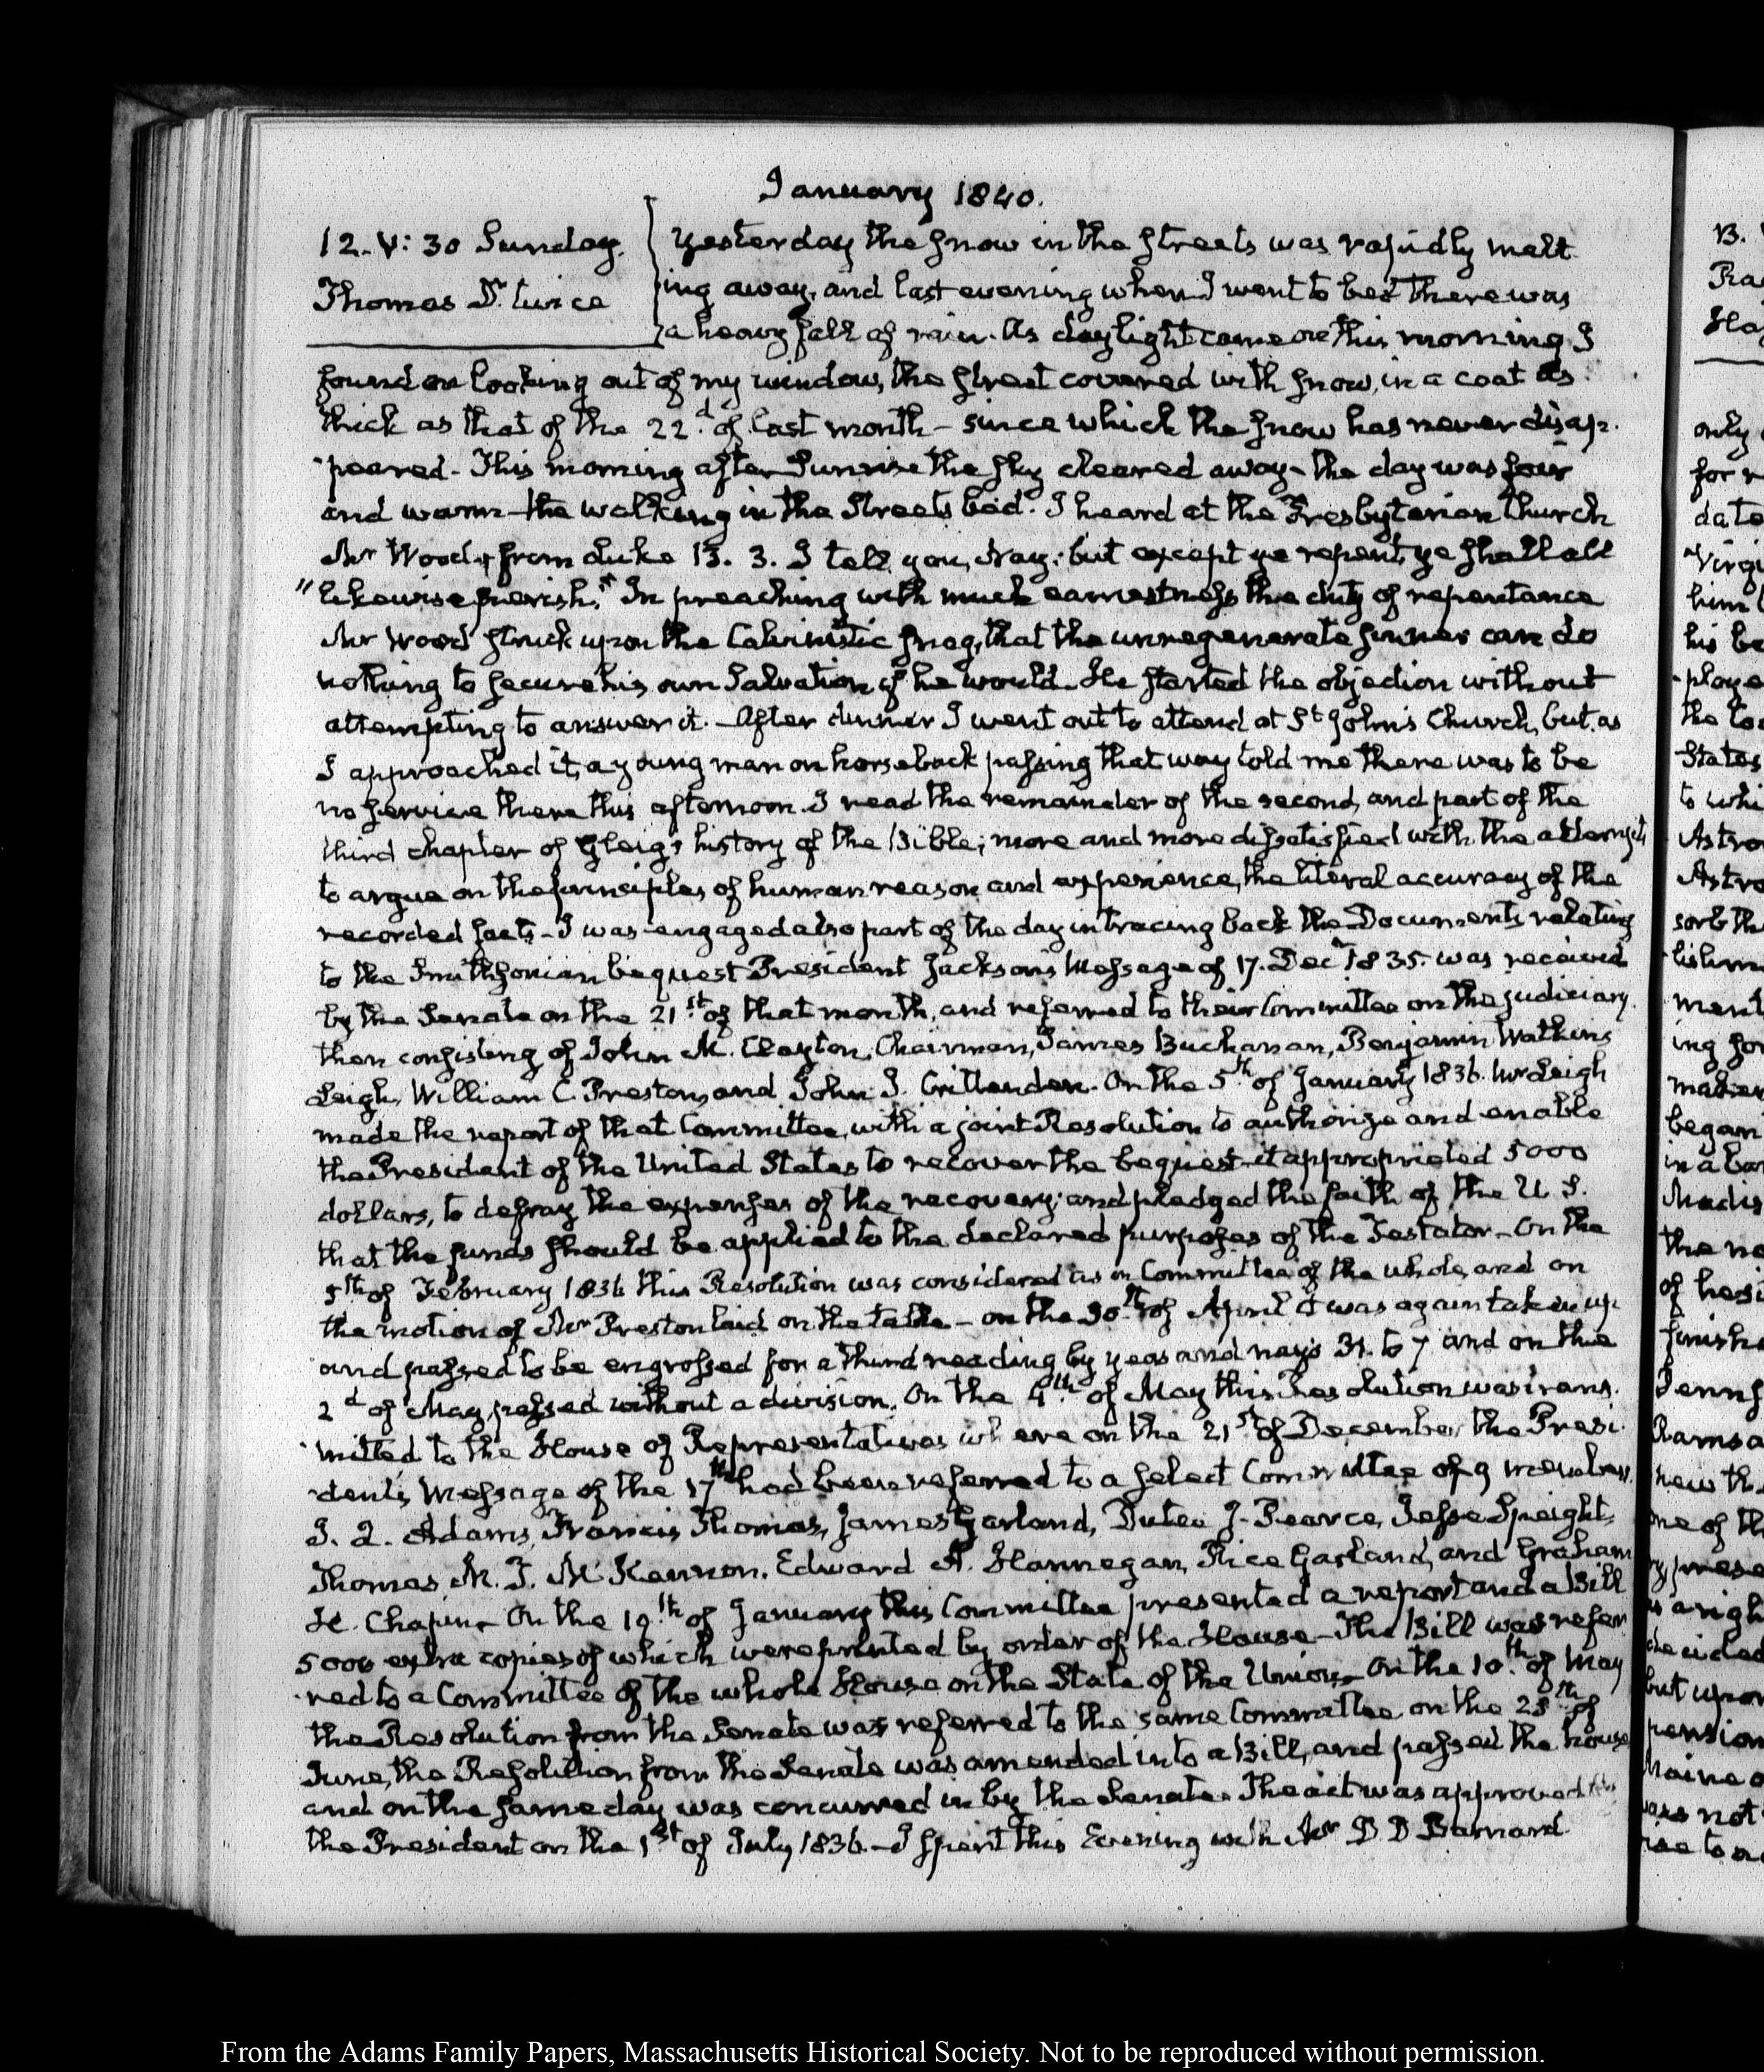 January 1840.
12. V: 30 Sunday.
Thomas D. twice
Yesterday the snow in the streets was rapidly melt
ing away, and last evening when I went to bed there was
a heavy fall of rain. As daylight came on this morning I
found on looking out of my window, the street covered with snow, in a coat as
thick as that of the 22.d of last month - since which the snow has never disap-
-peared - This morning after Sunrise the sky cleared away - the day was fair
and warm - the walking in the Streets bad. I heard at the Presbyterian Church
Mr Wood, from Luke 13. 3. I tell you, Nay: but except ye repent, ye shall all
"likewise perish." In preaching with much earnestness the duty of repentance
Mr Wood struck upon the Calvinistic snag, that the unregenerate sinner can do
nothing to secure his own Salvation if he would. He started the objection without
attempting to answer it. - After dinner I went out to attend at St John's Church, but as
I approached it, a young man on horseback passing that way told me there was to be
no service there this afternoon. I read the remainder of the second, and part of the
third chapter of Gleig's history of the Bible; more and more dissatisfied with the attempt
to argue on the principles of human reason and experience, the literal accuracy of the
recorded facts - I was engaged also part of the day in tracing back the Documents relating
to the Smithsonian bequest President Jackson's Message of 17. Decr 1835. was received
by the Senate on the 21.st of that month, and referred to their Committee on the judiciary.
then consisting of John M. Clayton, Chairman, James Buchanan, Benjamin Watkins
Leigh, William C. Preston, and John J. Crittenden. On the 5.th of January 1836. Mr Leigh
made the report of that Committee, with a joint Resolution to authorize and enable
the President of the United States to recover the bequest - it appropriated 5000
dollars, to defray the expenses of the recovery; and pledged the faith of the U. S.
that the funds should be applied to the declared purposes of the Testator - On the
5th of February 1836 this Resolution was considered as in Committee of the whole, and on
the motion of Mr Preston laid on the table - on the 30.th of April it was again taken up
and passed to be engrossed for a third reading by yeas and nays 31. to 7 and on the
2d of May passed without a division. On the 4.th of May this Resolution was trans-
-mitted to the House of Representatives where on the 21st of December, the Presi-
-dent's Message of the 17th had been referred to a select Committee of 9 members.
J. Q. Adams, Francis Thomas, James Garland, Dutee J. Pearce, Jesse Speight,
Thomas M. T. McKennon, Edward A. Hannegan, Rice Garland, and Graham
H. Chapin - On the 19.th of January this Committee presented a report and a Bill
5000 extra copies of which were printed by order of the House - The Bill was refer
-red to a Committee of the whole House on the State of the Union - On the 10.th of May
the Resolution from the Senate was referred to the same Committee, on the 28.th of
June, the Resolution from the Senate was amended into a Bill, and passed the house
and on the same day was concurred in by the Senate. The act was approved
the President on the 1st of July 1836. - I spent this Evening with Mr D D Barnard.
13.
Ra
Ha
only
for
date
Virgi
him
his be
-ploye
the
States
to whi
Astro
Astro
sorb th
-lishm
ment
ing for
maker
began
in a bar
Madis
the no
of hesi
finish
Penns
Ramsa
new th
one of th
prese
a righ
decided
but upon
pension
Maine
was not
From the Adams Family Papers, Massachusetts Historical Society. Not to be reproduced without permission.